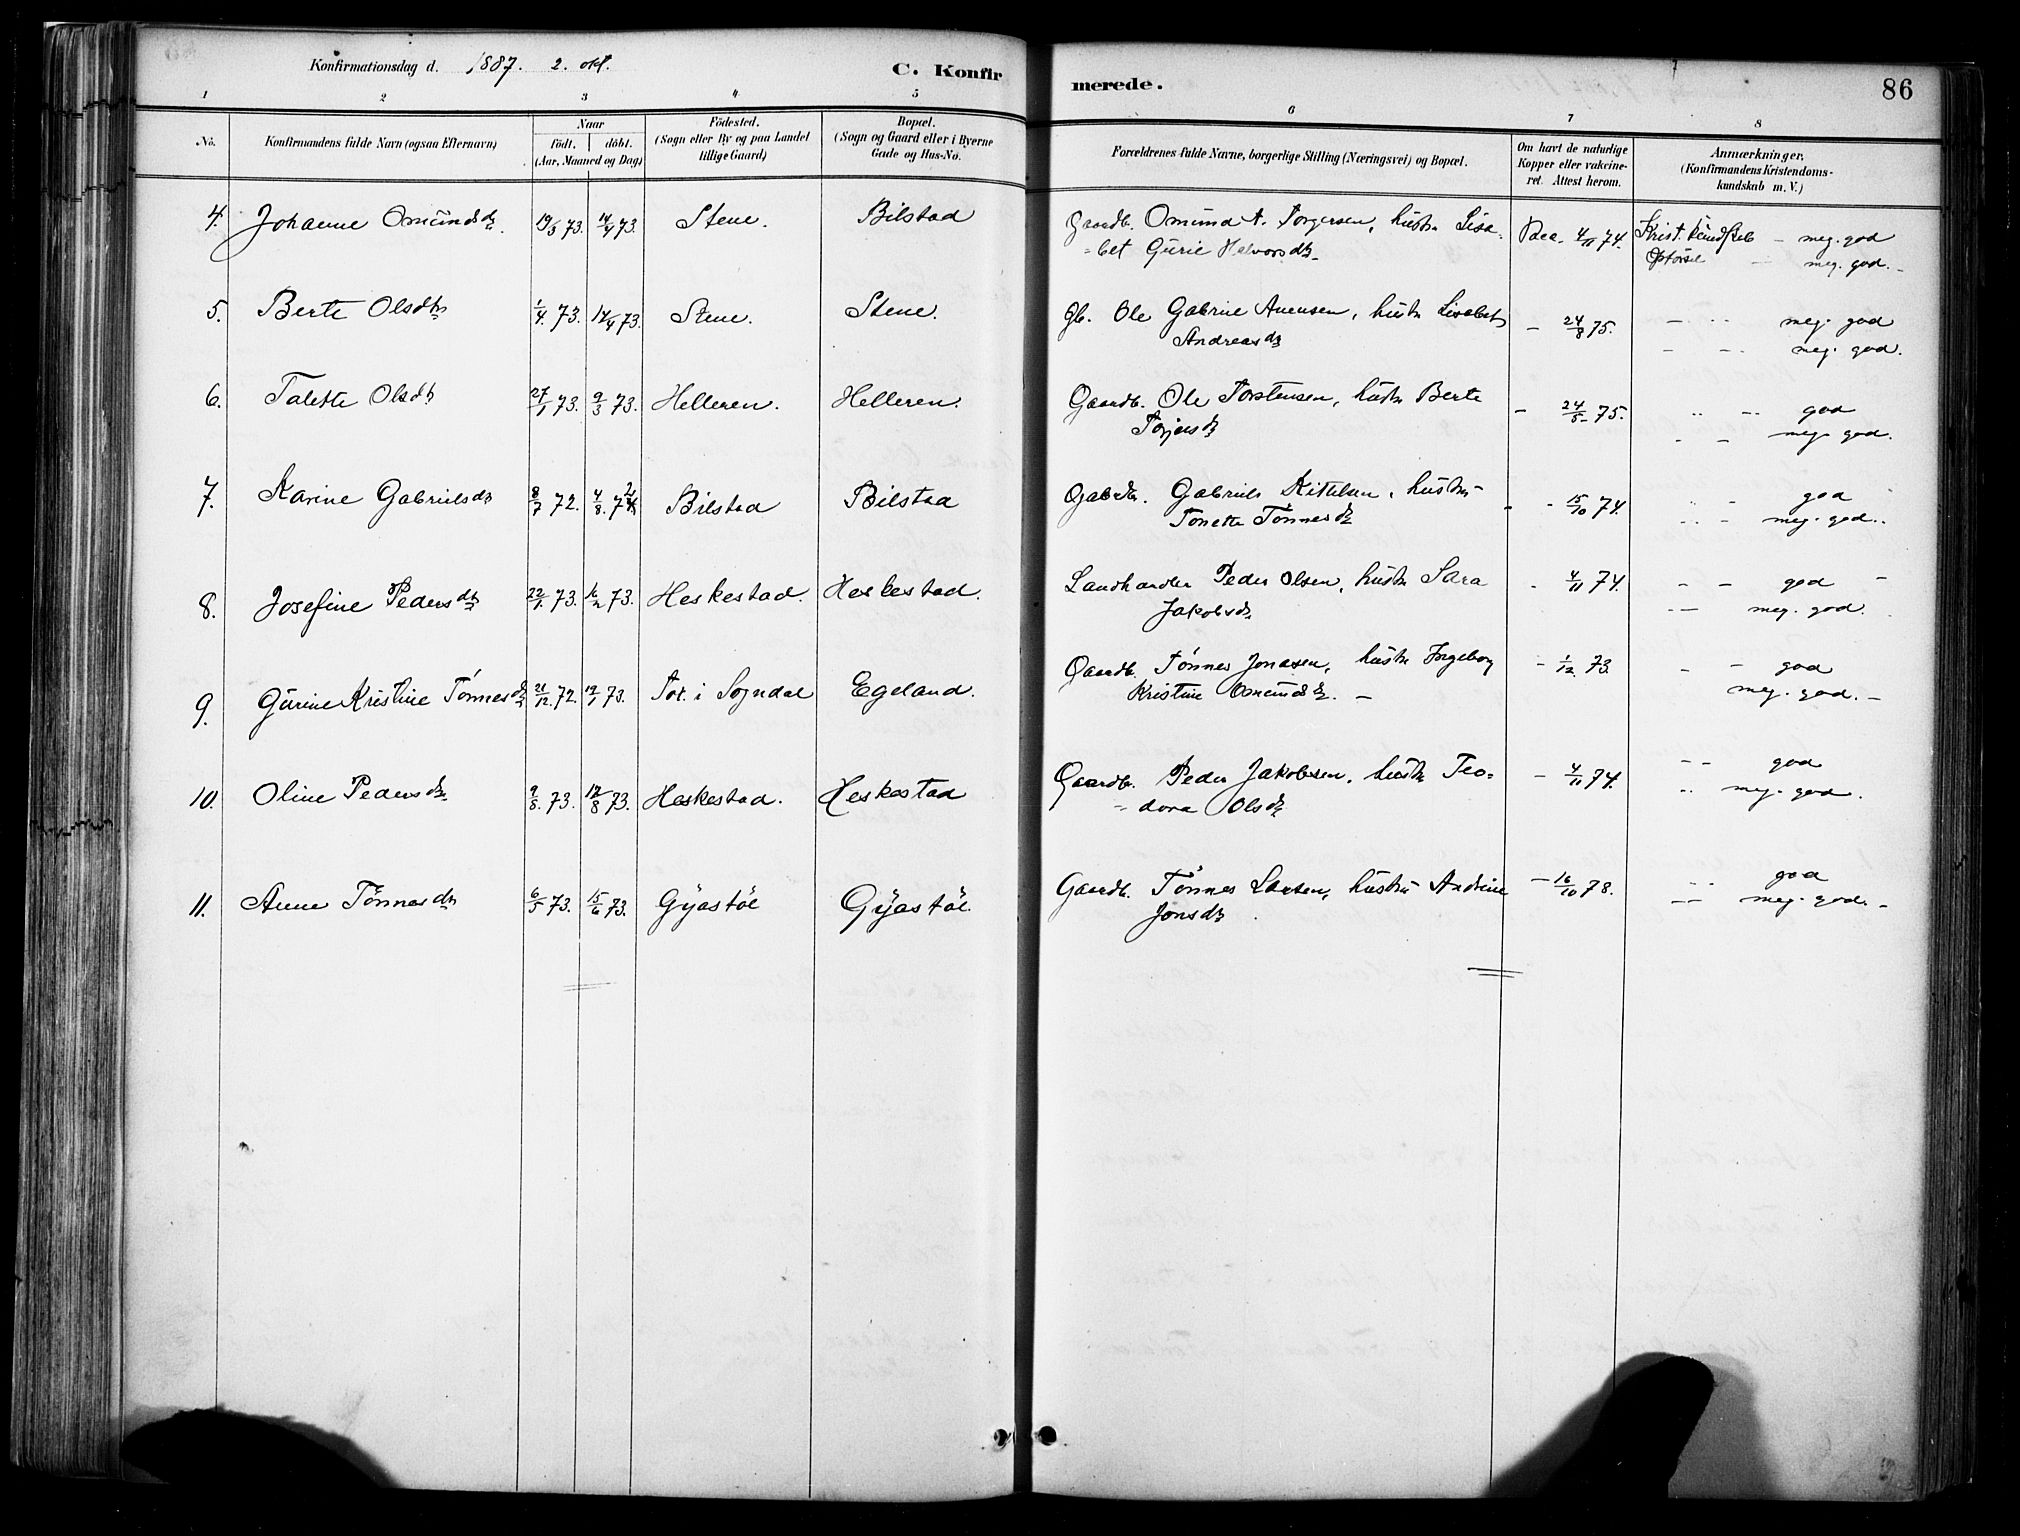 Konfirmationsdag d. 1887. 2. okt.
C. Konfir merede. 86
1 2 3 4 5 6 7 8
No.
Konfirmandens fulde Navn (ogsaa Efternavn)
Naar
født. døbt.
(Aar, Maaned og Dag)
Födested.
(Sogn eller By og paa Landet
tillige Gaard)
Bopæl.
(Sogn og Gaard eller i Byerne
Gade og Hus-No.
Forældrenes fulde Navne, borgerlige Stilling (Næringsvei) og Bopæl.
Om havt de naturlige
Kopper eller vakcine-
ret. Attest herom.
Anmærkninger.
(Konfirmandens Kristendoms-
kundskab m. V.)
4. Johanne Omundsdtr. 19/3 73. 14/4 73. Stene. Bilstad Gaardb. Omund A. Torgersen, hustru Lisa- Vacc. 4/11 74. Krist. kundskab - meg. god
-bet Gurie Halvorsdtr. - Opførsel - meg. god. -
5. Berte Olsdtr 1/4 73. 14/4 73. Stene. Stene. Gb. Ole Gabriel Anensen, hustr Lisabet - 24/8 75. - " meg. god
Andreasdtr - - meg. god.
6. Talette Olsdtr 27/1 73. 9/3 73. Helleren. Helleren. Gaardb. Ole Torstensen, hustr Berte - 24/5 75. " - god
Torjersdtr - - meg. god.
7. Karine Gabrielsdtr 8/7 72. 4/8 72 Bilstad Bilstad Gaardb. Gabriel Kittelsen, hustru - 15/10 74. " - god
Tonette Tønnesdtr " - meg. god.
8. Josefine Pedersdtr 22/1 73. 16/2 73. Heskestad. Heskestad. Landhandler Peder Olsen, hustr Sara - 4/11 74. - - god
Jakobsdtr - - meg. god.
9. Gurine Kristine Tønnesdtr 21/12 72. 12/1 73. i Sogndal Egeland. Gaardb. Tønnes Jonasen, hustr Ingeborg - 1/12 73. - - god
Kristine Omundsdtr. - meg. god. -
10. Oline Pedersdtr 9/8 73. 17/8 73. Heskestad. Heskestad Gaardb. Peder Jakobsen, hustr Teo- - 4/11 74. - - god
-dora Olsdtr " meg. god.
11. Anne Tønnesdtr 6/5 73. 15/6 73. Gyastøl Gyastøl. Gaardb. Tønnes Larsen, hustru Andrine - 16/10 78. " god
Jonsdtr - - meg. god. -